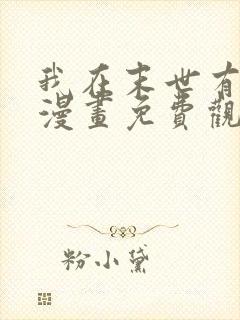 我在末世有
漫畫免費觀
粉小黛